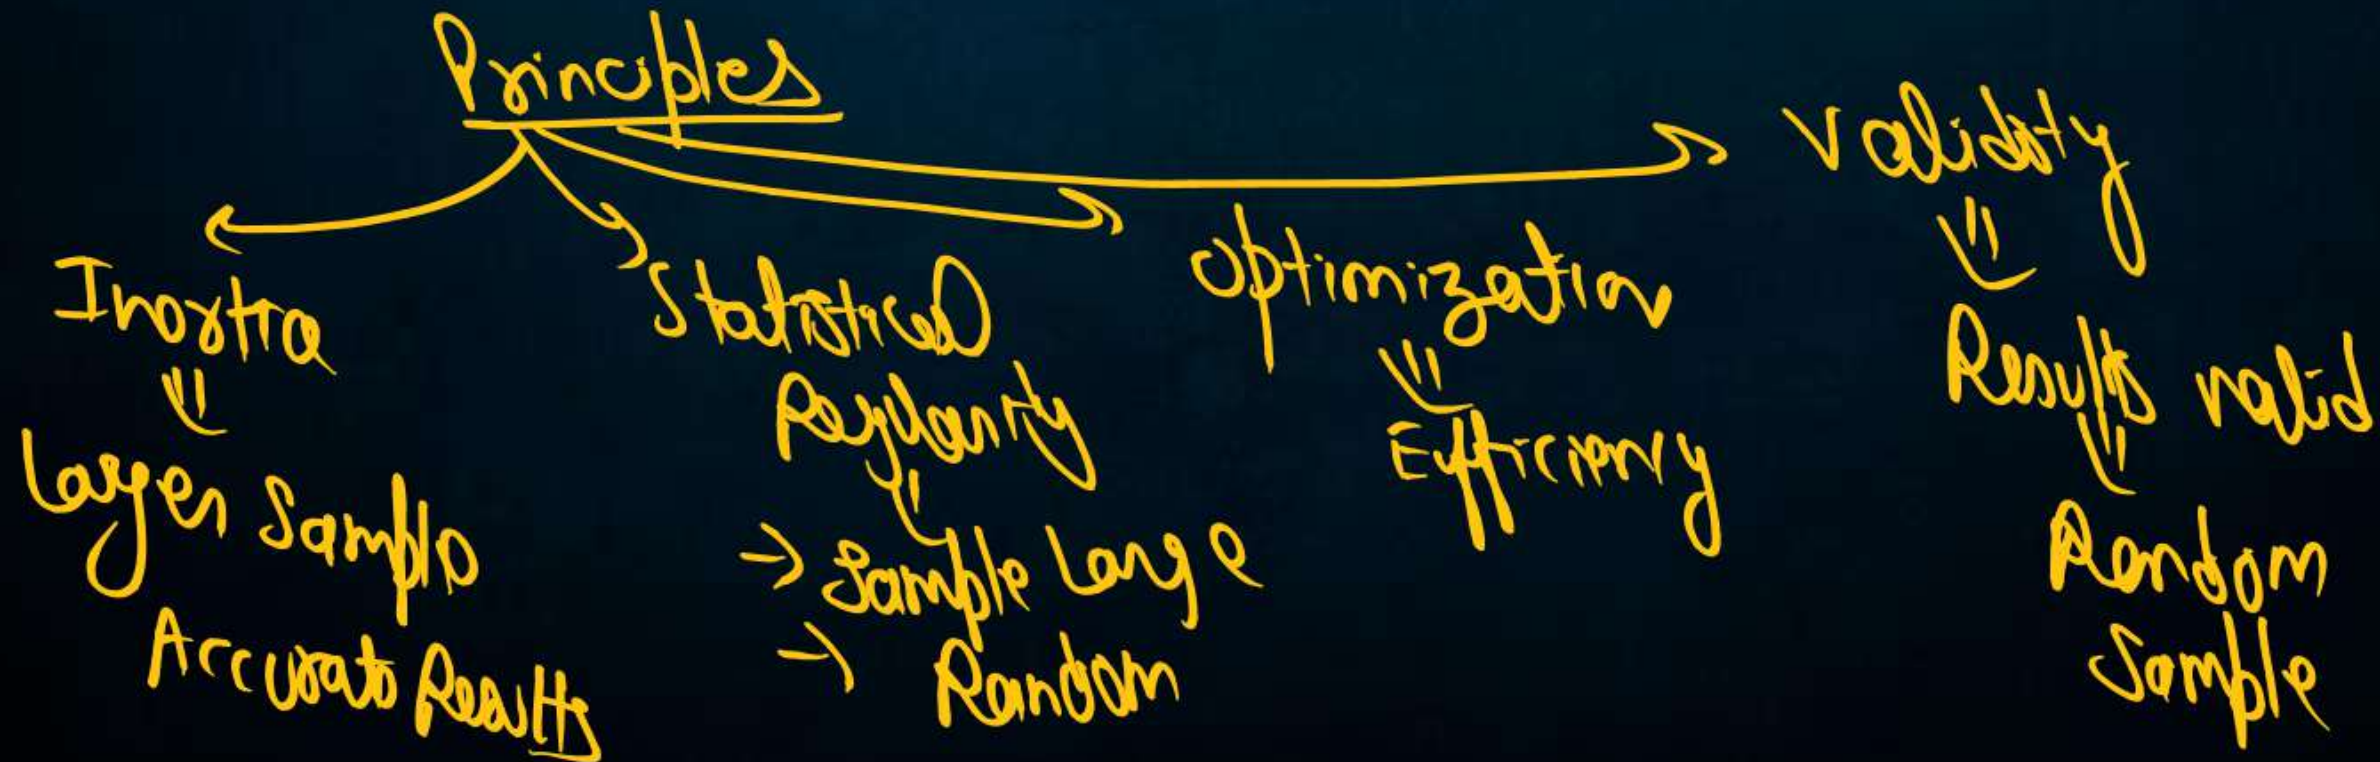 Principles
Inertia
Larger Sample
Accurate Results
Statistical
Regularity
→ Sample Large
→ Random
Optimization
Efficiency
Validity
Results valid
Random
Sample